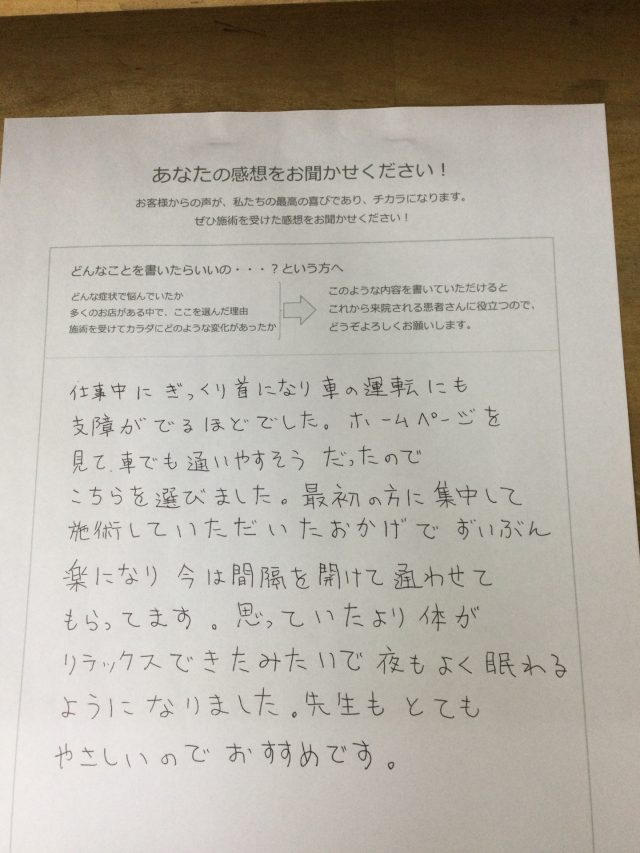 あなたの感想をお聞かせください！
お客様からの声が、私たちの最高の喜びであり、チカラになります。
ぜひ施術を受けた感想をお聞かせください！
どんなことを書いたらいいの・・・？という方へ
どんな症状で悩んでいたか
多くのお店がある中で、ここを選んだ理由
施術を受けてカラダにどのような変化があったか
このような内容を書いていただけると
これから来院される患者さんに役立つので、
どうぞよろしくお願いします。
仕事中に ぎっくり首になり 車の運転にも
支障がでるほどでした。ホームページを
見て、車でも通いやすそう だったので
こちらを選びました。最初の方に集中して
施術していただいたおかげで ずいぶん
楽になり 今は間隔を開けて通わせて
もらってます。思っていたより体が
リラックスできたみたいで夜もよく眠れる
ようになりました。先生もとても
やさしいので おすすめです。